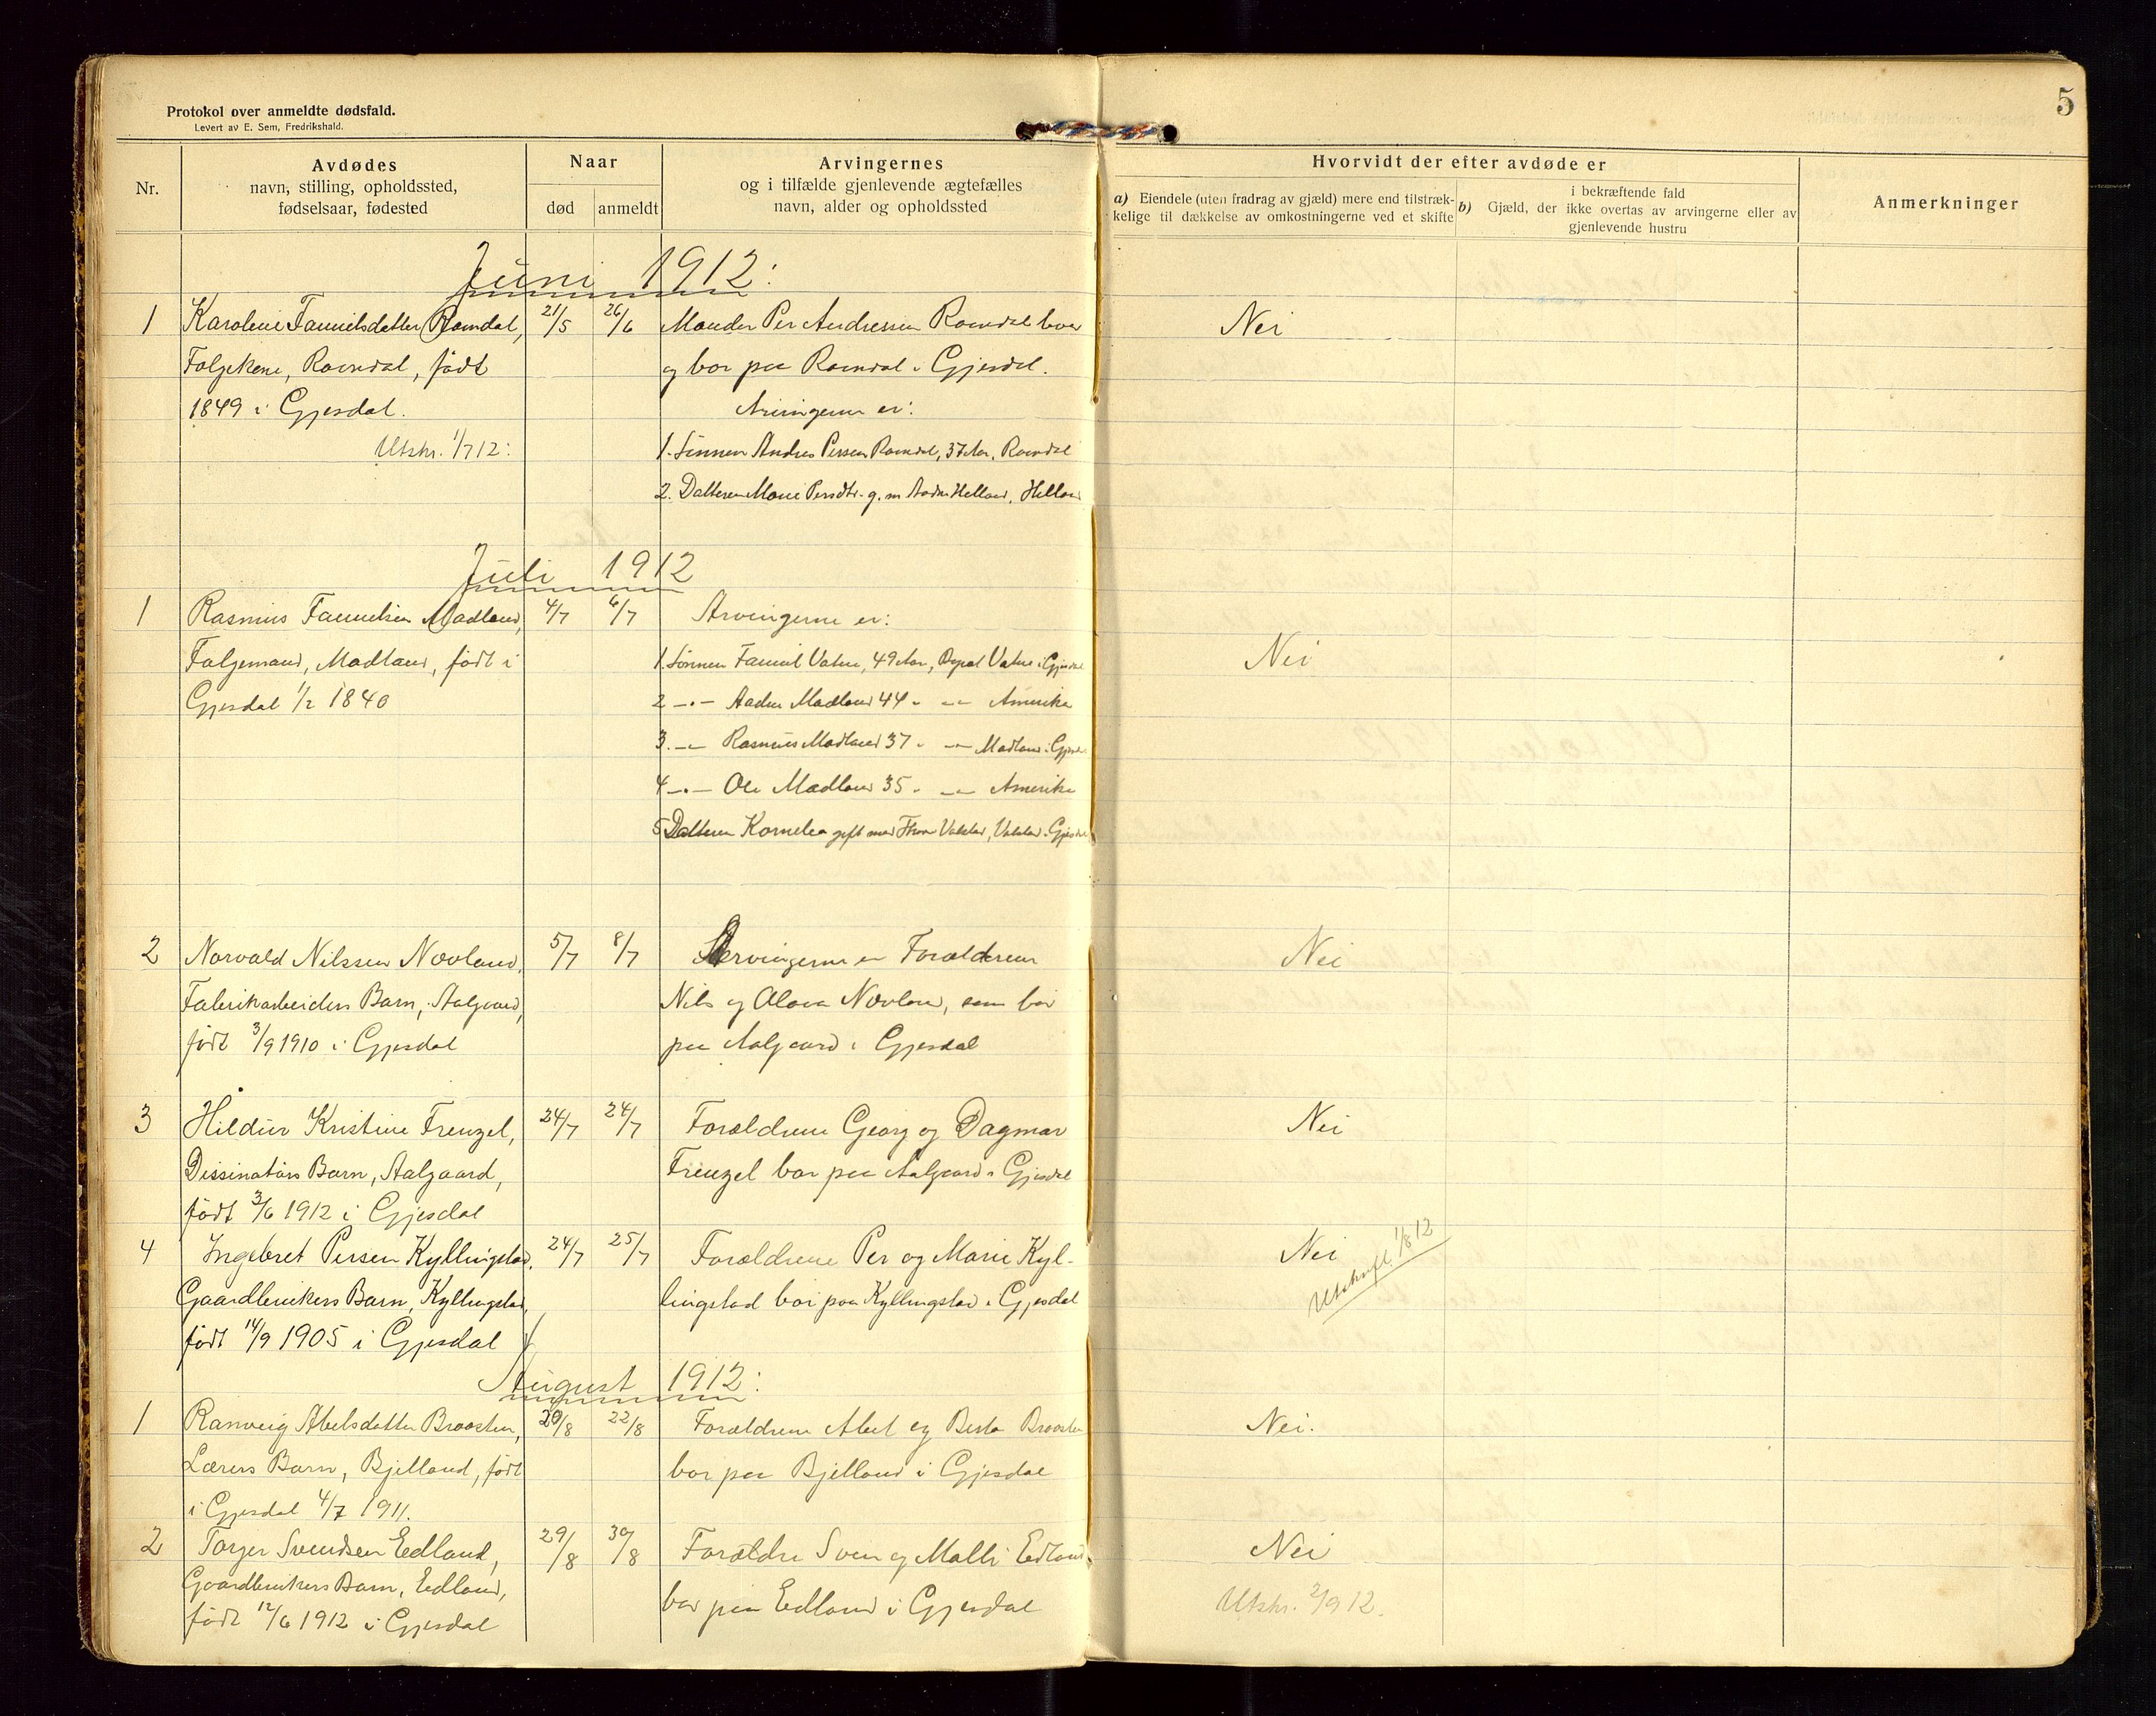 Protokol over anmeldte dødsfald.
Levert av E. Sem, Fredrikshald.
5
Nr.
Avdødes
navn, stilling, opholdssted,
fødselsaar, fødested
Naar
død
anmeldt
Arvingernes
og i tilfælde gjenlevende ægtefælles
navn, alder og opholdssted
Hvorvidt der efter avdøde er
a) Eiendele (uten fradrag av gjæld) mere end tilstræk-
kelige til dækkelse av omkostningerne ved et skifte
i bekræftende fald
b) Gjæld, der ikke overtas av arvingerne eller av
gjenlevende hustru
Anmerkninger
Juni 1912:
1 Karoline Faurelsdatter Ravndal, 21/5 26/6 Manden Per Andressen Ravndal lever Nei
Folgekone, Ravndal, født og bor paa Ravndal i Gjesdal.
1849 i Gjesdal. Arvingerne er:
Utskr. 1/7 12: 1. Sønnen Andres Persen Ravndal, 37 Aar, Ravndal
2. Datteren Marie Persdtr. g. m. Helland, Helland
Juli 1912
1 Rasmus Madland, 4/7 6/7 Arvingerne er:
Folgemand, Madland, født i 1. Sønnen Vatne, 49 Aar, Vatne i Gjesdal Nei
Gjesdal 1/2 1840 2 -"- Madland 44 " -"- Amerika
3. -"- Rasmus Madland 37 " -"- Madland i Gjesdal
4 -"- Ole Madland 35 " -"- Amerika
5 Datteren Kornelia gift med i Gjesdal
2 Norvald Nilssen Novland, 5/7 8/7 Arvingerne er Forældrene Nei
Fabrikarbeiders Barn, Aalgaard, Nils og Novland, som bor
født 3/9 1910 i Gjesdal paa Aalgaard i Gjesdal
3 Hildur Kristine Frenzel, 24/7 24/7 Forældrene Georg og Dagmar Nei
Dissinatørs Barn, Aalgaard, Frenzel bor paa Aalgaard i Gjesdal
født 3/6 1912 i Gjesdal
4 Ingebret Persen Kyllingstad, 24/7 25/7 Forældrene Per og Marie Kyl- Nei
Gaardbrukers Barn, Kyllingstad, lingstad bor paa Kyllingstad i Gjesdal Utskrift 1/8 12
født 14/9 1905 i Gjesdal
August 1912:
1 Ranveig Abelsdatter Braasten, 20/8 22/8 Forældrene Abel og Berta Braasten Nei.
Lærers Barn, Bjelland, født bor paa Bjelland i Gjesdal
i Gjesdal 4/7 1911.
2 Torger Svendsen Eedland, 29/8 30/8 Forældre Sven og Malli Edland Nei
Gaardbrukers Barn, Eedland, bor paa Edland i Gjesdal Utskr. 2/9 12.
født 12/6 1912 i Gjesdal